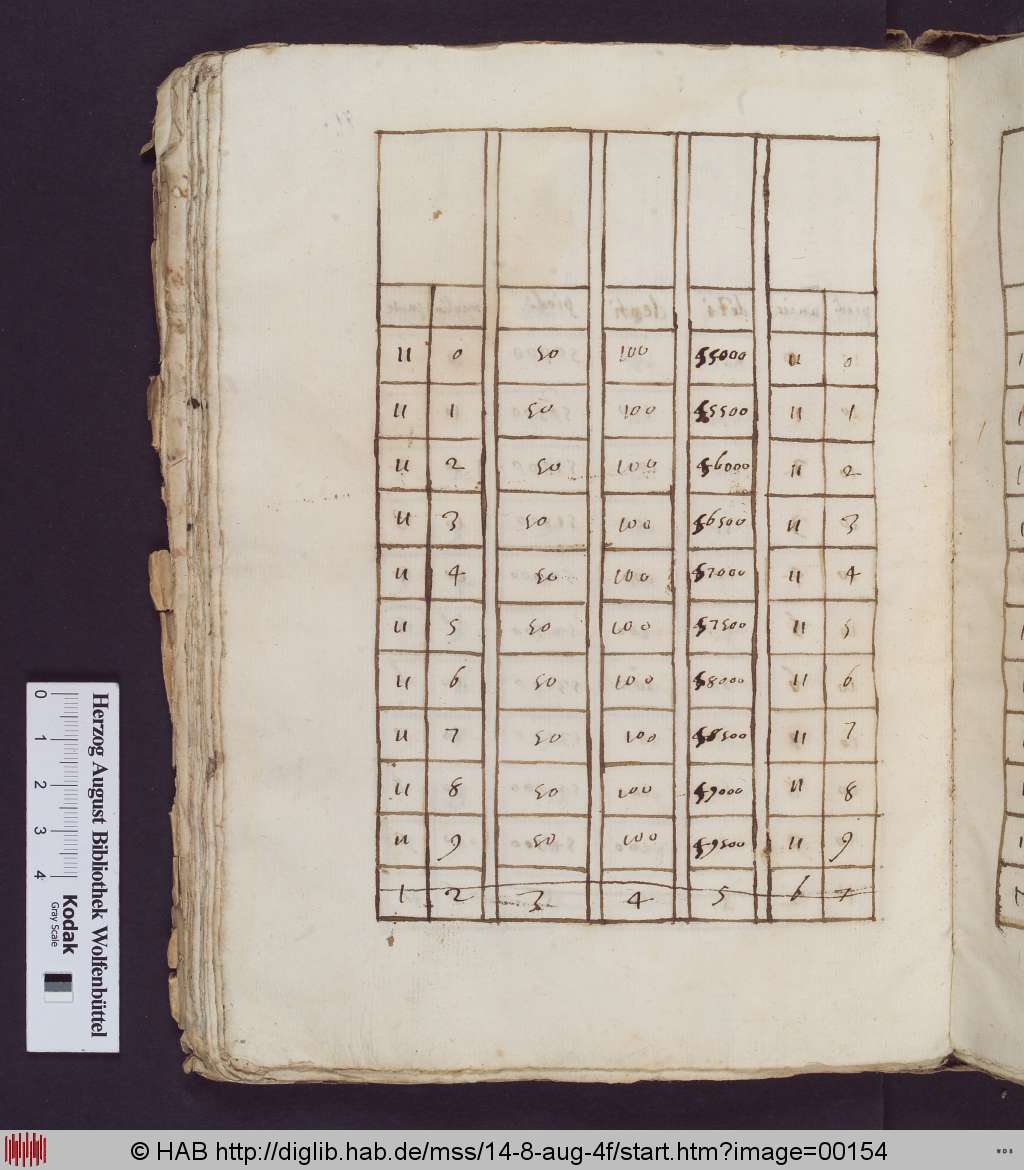 11 0 50 100 55000 11 0
11 1 50 100 55500 11 1
11 2 50 100 56000 11 2
11 3 50 100 56500 11 3
11 4 50 100 57000 11 4
11 5 50 100 57500 11 5
11 6 50 100 58000 11 6
11 7 50 100 58500 11 7
11 8 50 100 59000 11 8
11 9 50 100 59500 11 9
1 2 3 4 5 6 7
0 1 2 3 4
Herzog August Bibliothek Wolfenbüttel
Kodak
Gray Scale
© HAB http://diglib.hab.de/mss/14-8-aug-4f/start.htm?image=00154